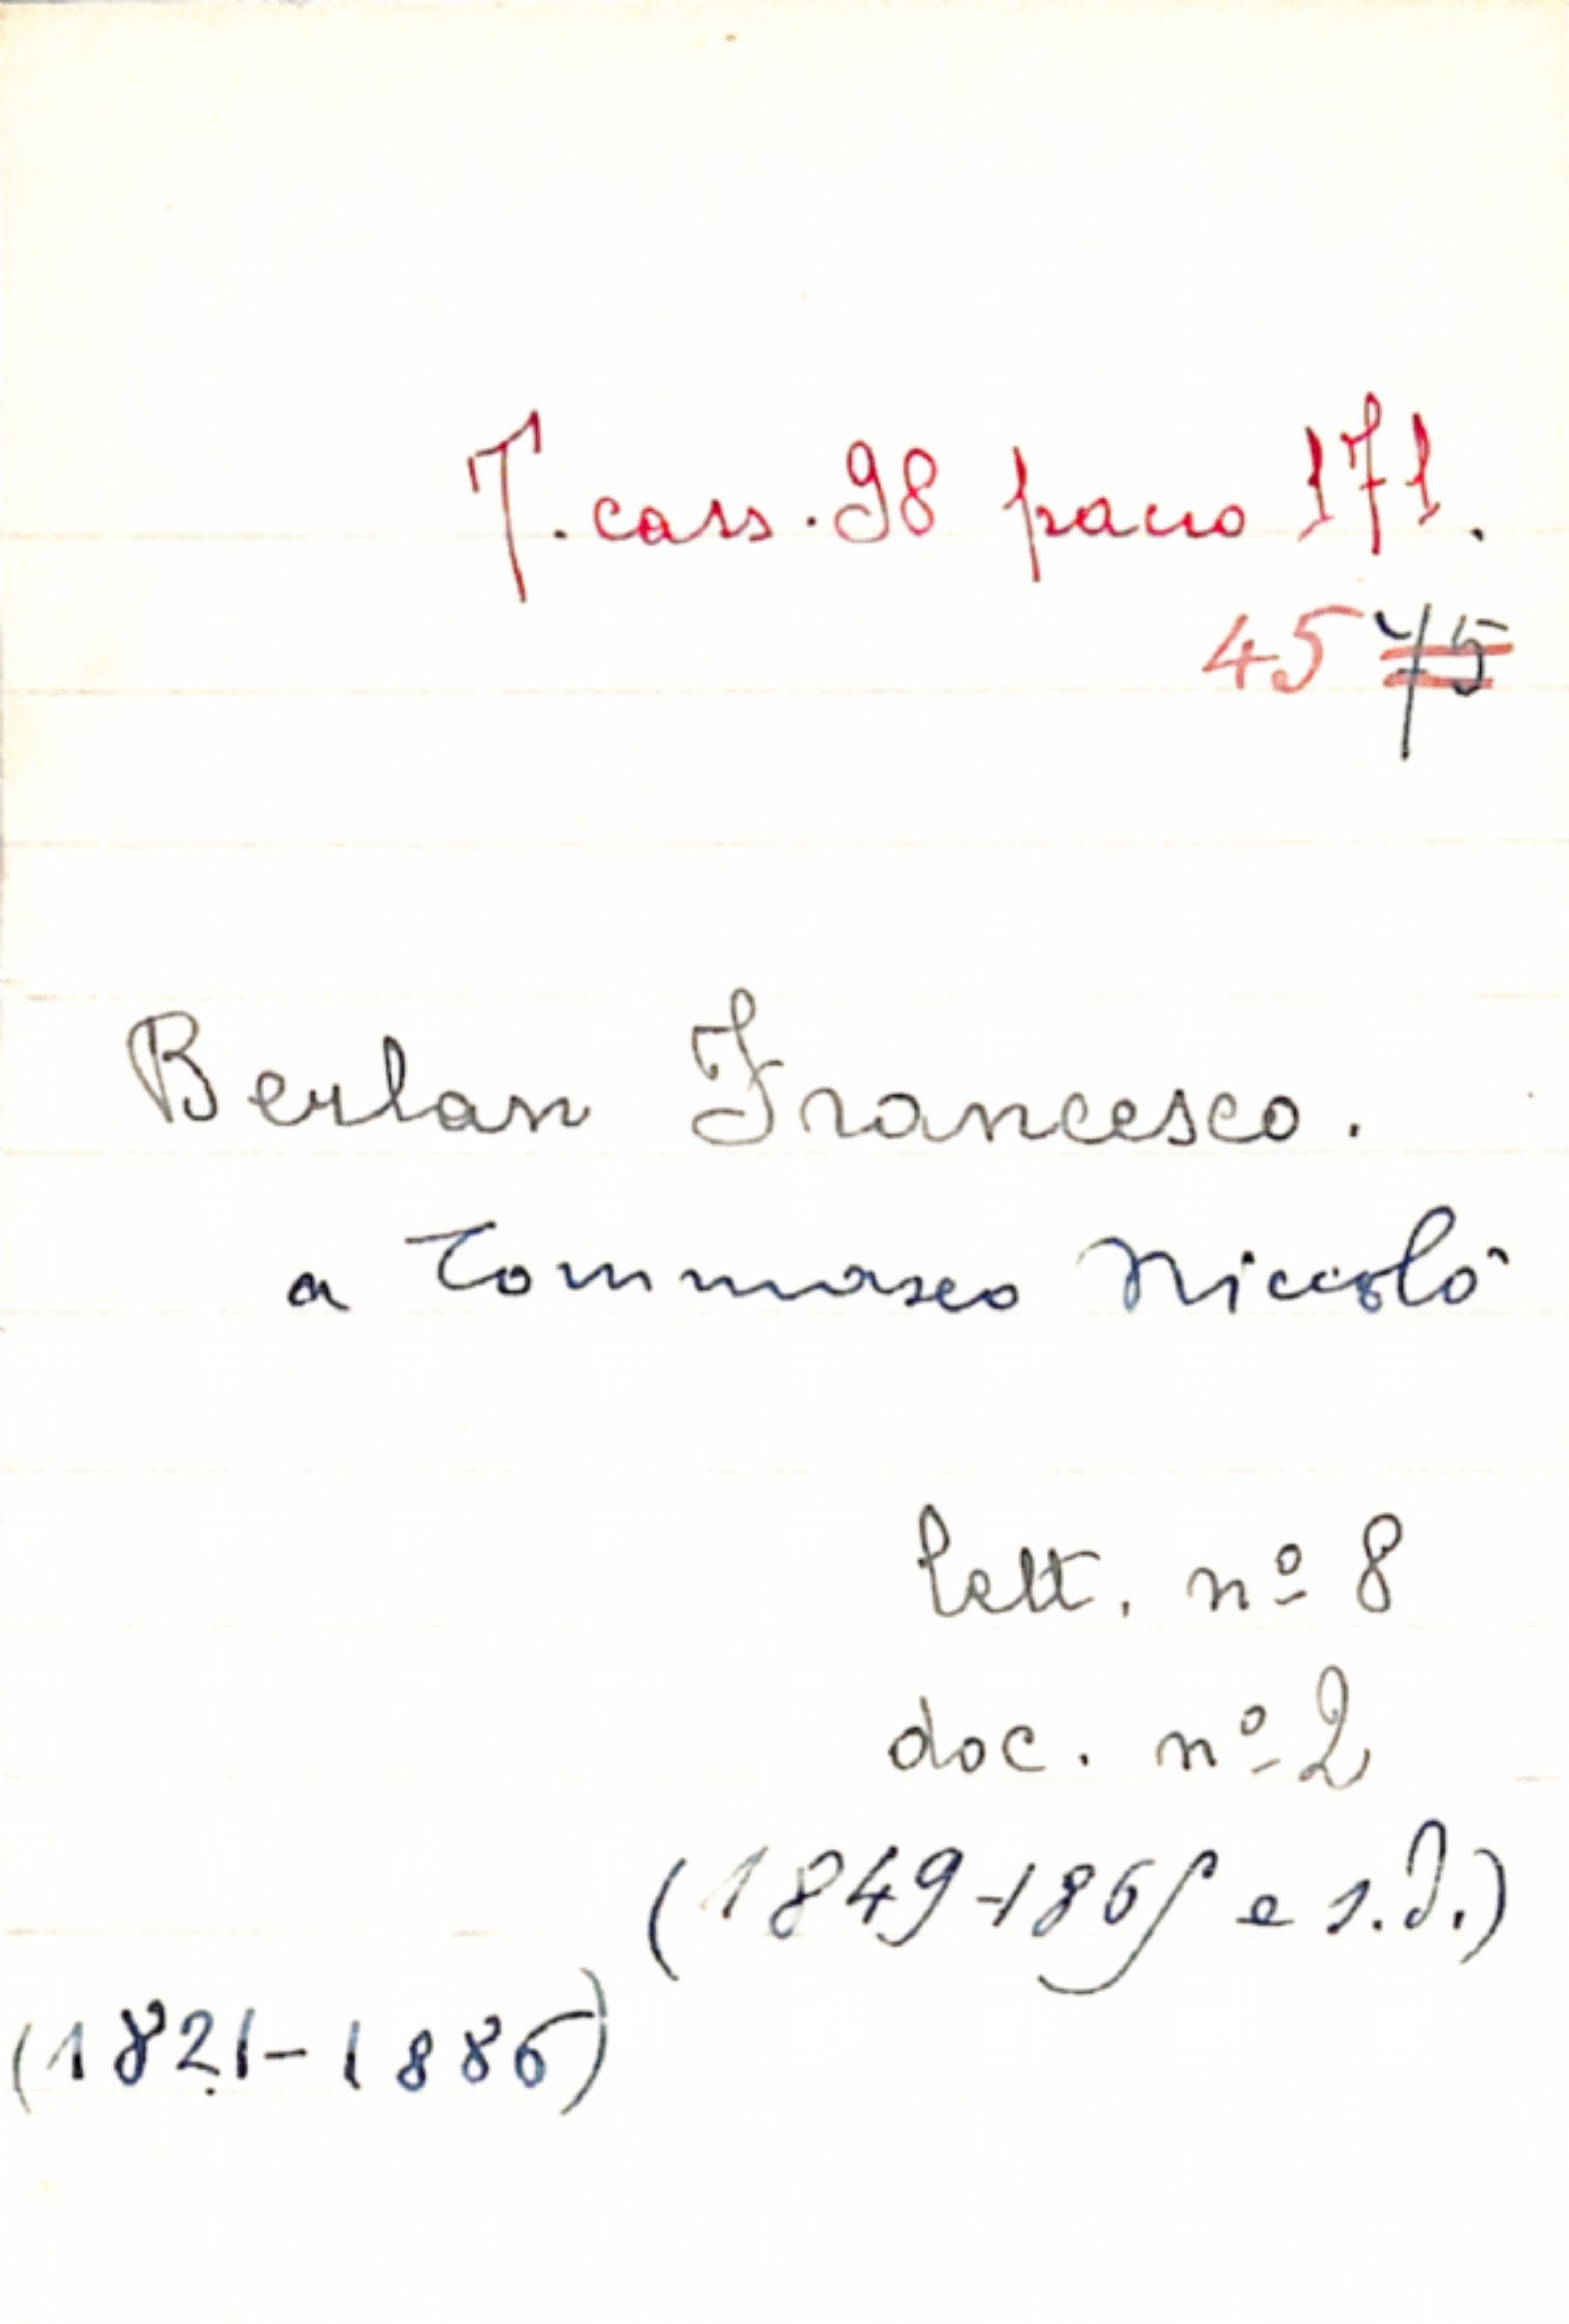 T. cass. 98 pacco 171.
45 75
Berlan Francesco.
a Tommaseo Niccolò
lett. nº 8
doc. nº 2
(1849-1865 e s.d.)
(1821-1886)